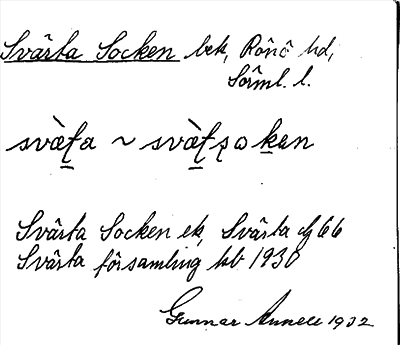 Svärta Socken bek, Rönö hd,
Sörml. l.
svæ̀ṯa ~ svæ̀ṯṣoḵen
Svärta Socken ek, Svärta dg 66
Svärta församling kb 1930
Gunnar 1932